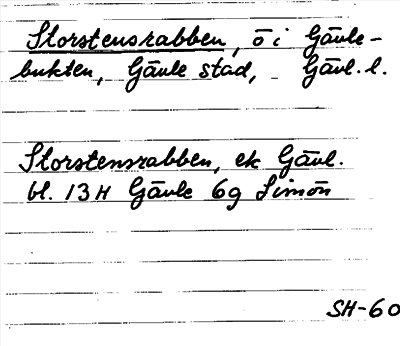 Storstensrabben, ö i Gävle-
bukten, Gävle stad, Gävl. l.
Storstensrabben, ek Gävl.
bl. 13H Gävle 6g Limön
SH-60